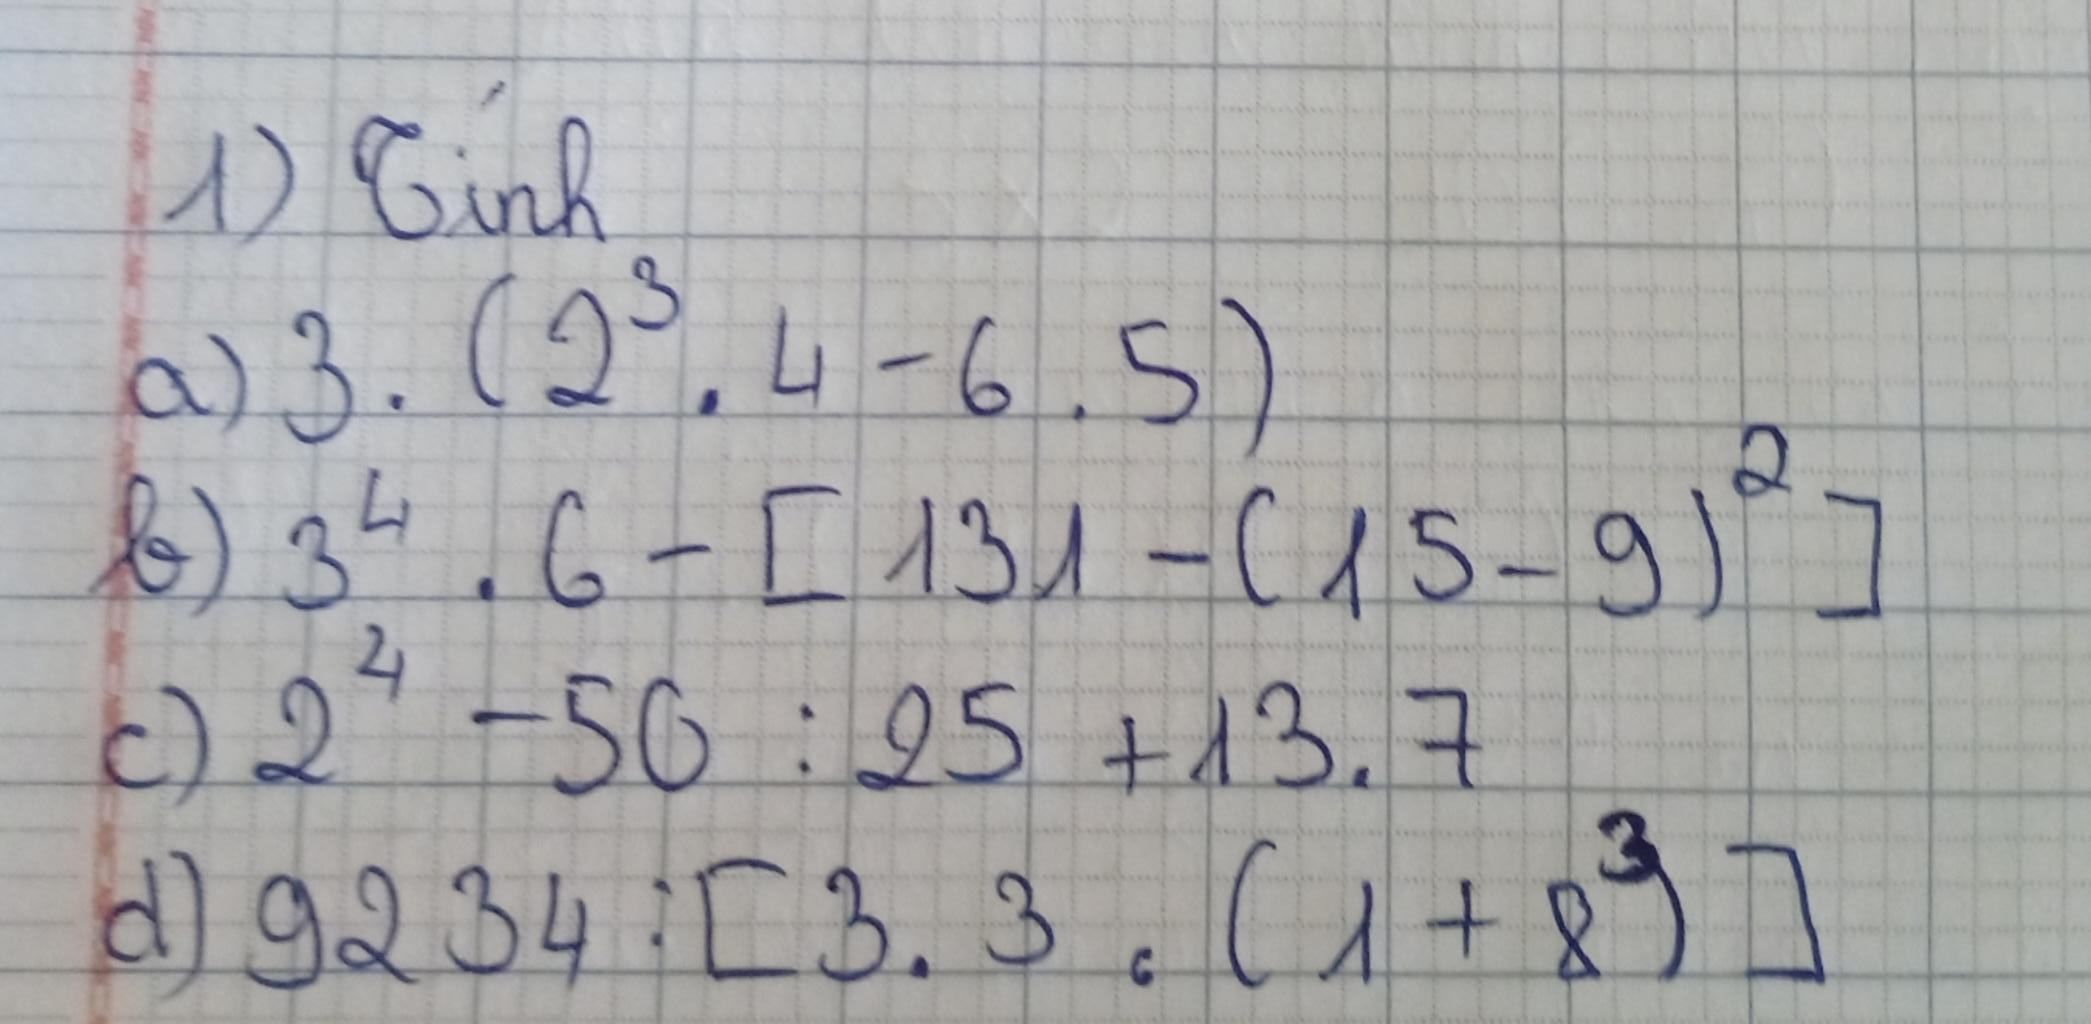 1) Tính
a) 3 . (2³ . 4 - 6 . 5)
b) 3⁴ . 6 - [131 - (15 - 9)²]
c) 2⁴ - 50 : 25 + 13 . 7
d) 9234 : [3 . 3 . (1 + 8³)]